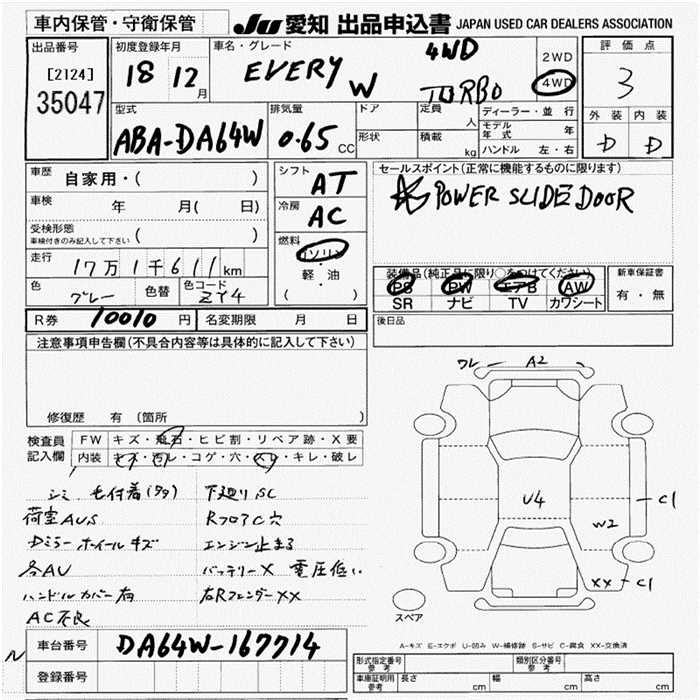 車内保管・守衛保管
JU 愛知 出品申込書 JAPAN USED CAR DEALERS ASSOCIATION
出品番号
[2124]
35047
初度登録年月
18 12 月
車名・グレード
EVERY W
4WD
TURBO
2WD
4WD
評価点
3
外装 内装
D D
型式
ABA-DA64W
排気量
0.65 CC
ドア
形状
定員 人
積載 kg
ディーラー・並行
モデル年式 年
ハンドル 左・右
車歴
自家用・( )
車検 年 月( 日)
受検形態
車検付きのみ記入して下さい ( )
走行 17万1千611km
色 グレー 色替 色コード ZY4
シフト AT
冷房 AC
燃料
ガソリン
軽・油
( )
セールスポイント(正常に機能するものに限ります)
POWER SLIDE DOOR
装備品(純正品に限り○をつけてください)
PS PW エアB AW
SR ナビ TV カワシート
新車保証書
有・無
R券 10010 円 名変期限 月 日
後日品
注意事項申告欄(不具合内容等は具体的に記入して下さい)
修復歴 有 (箇所 )
検査員 記入欄
FW キズ・飛石・ヒビ割・リペア跡・X要
内装 キズ・汚レ・コゲ・穴・スレ・キレ・破レ
シミ 毛付着(タタ) 下廻りSC
荷室AUS RフロアC穴
Dミラー ホイールキズ エンジン止まる
各AU バッテリーX 電圧低い
ハンドルカバー有 右RフェンダーXX
AC不良
ワレ A2
U4
C1
W2
XX C1
スペア
A-キズ E-エクボ U-凹み W-補修跡 S-サビ C-腐食 XX-交換済
車台番号 DA64W-167714
登録番号
形式指定番号 参考
類別区分番号 参考
車庫証明用 参考 長さ cm 幅 cm 高さ cm